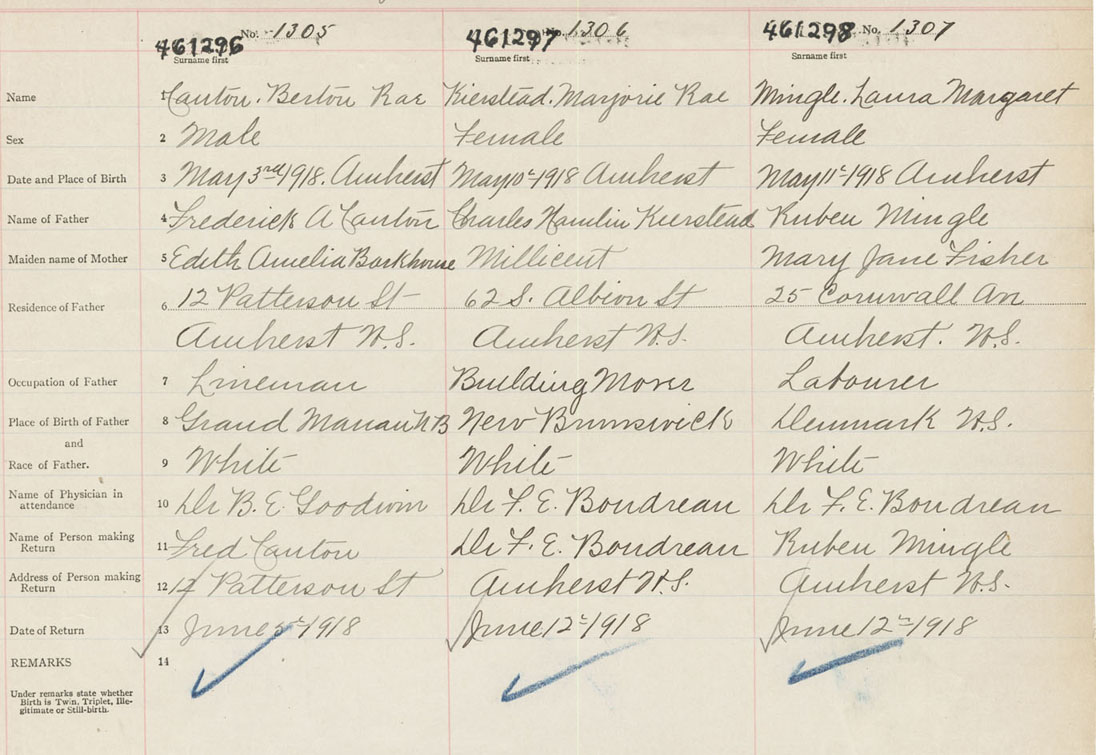 No. 1305 No. 1306 No. 1307
461296 461297 461298
Surname first Surname first Surname first
Name 1 Canton. Berton Rae Kierstead. Marjorie Rae Mingle. Laura Margaret
Sex 2 Male Female Female
Date and Place of Birth 3 May 3rd 1918. Amherst May 10th 1918 Amherst May 11th 1918 Amherst
Name of Father 4 Frederick A Canton Charles Hamlin Kierstead Ruben Mingle
Maiden name of Mother 5 Edith Amelia Barkhouse Millicent Mary Jane Fisher
Residence of Father 6 12 Patterson St 62 S. Albion St 25 Cornwall Av
Amherst N.S. Amherst N.S. Amherst. N.S.
Occupation of Father 7 Lineman Building Mover Labourer
Place of Birth of Father 8 Grand Manan N B New Brunswick Denmark N.S.
and
Race of Father. 9 White White White
Name of Physician in attendance 10 Dr B. E. Goodwin Dr F. E. Boudreau Dr F. E. Boudreau
Name of Person making Return 11 Fred Canton Dr F. E. Boudreau Ruben Mingle
Address of Person making Return 12 12 Patterson St Amherst N.S. Amherst N.S.
Date of Return 13 June 5th 1918 June 12th 1918 June 12th 1918
REMARKS 14
Under remarks state whether
Birth is Twin, Triplet, Ille-
gitimate or Still-birth.